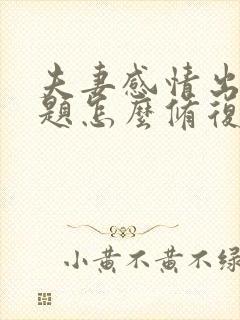 夫妻感情出
題怎麼脩復
小黄不黄不绿